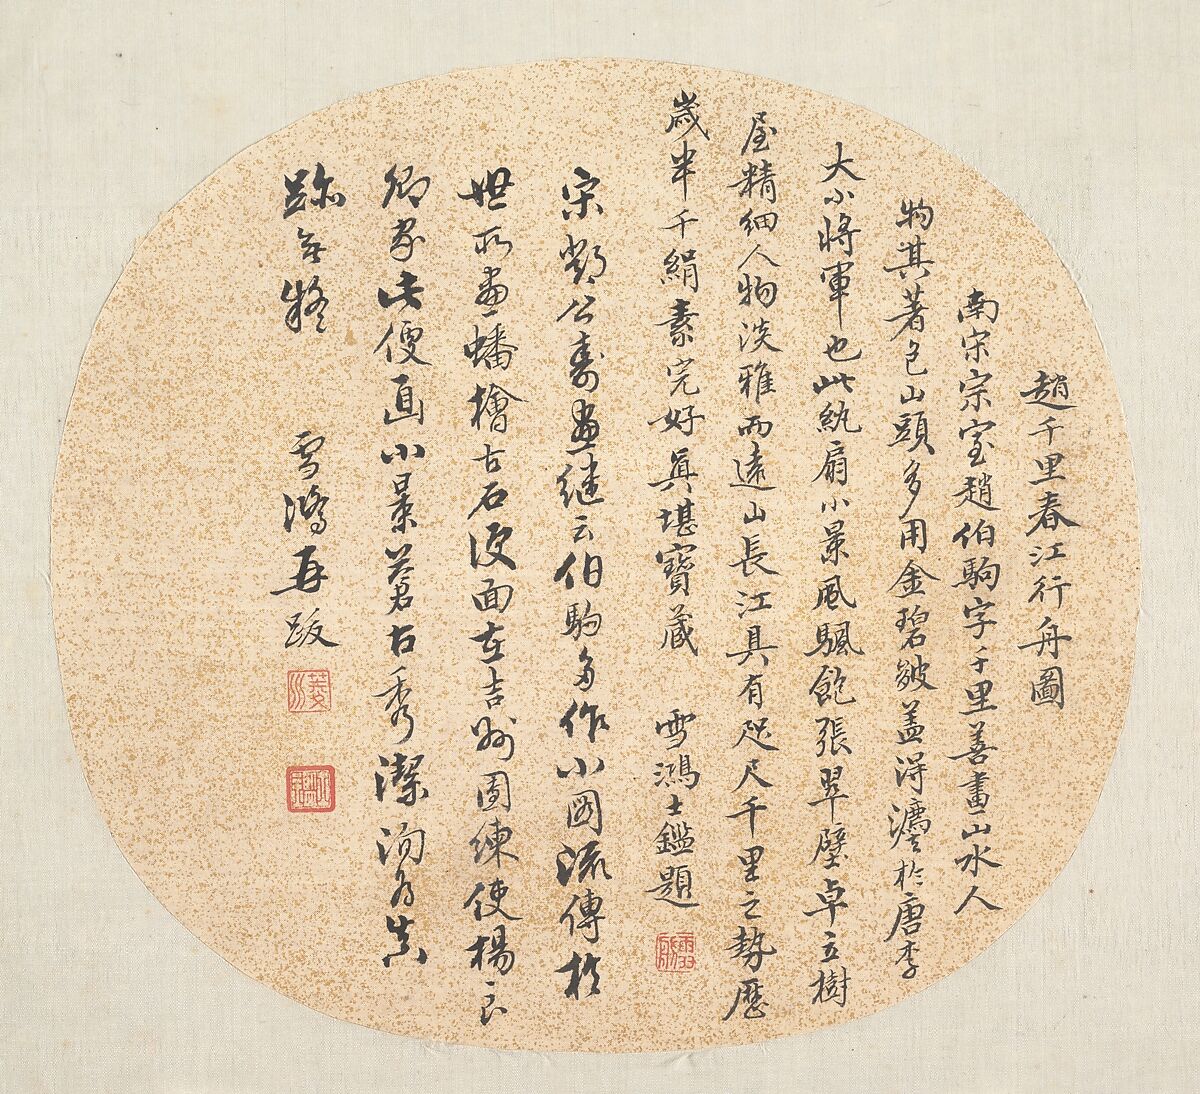 趙千里春江行舟圖
南宋宗室趙伯駒字千里善畫山水人
物其著色山頭多用金碧皴盖得灋於唐李
大小將軍也此紈扇小景風颿飽張翠壁卓立樹
屋精細人物淡雅而遠山長江具有咫尺千里之勢歷
歲半千絹素完好真堪寶藏 雪鴻士鑑題
宋鄧公壽畫继云伯駒多作小圖流傳於
世所畫蟠檜古石便面在吉州團練使楊
卿家此便面小景蒼古秀潔洵為真
跡無疑 雪鴻再跋